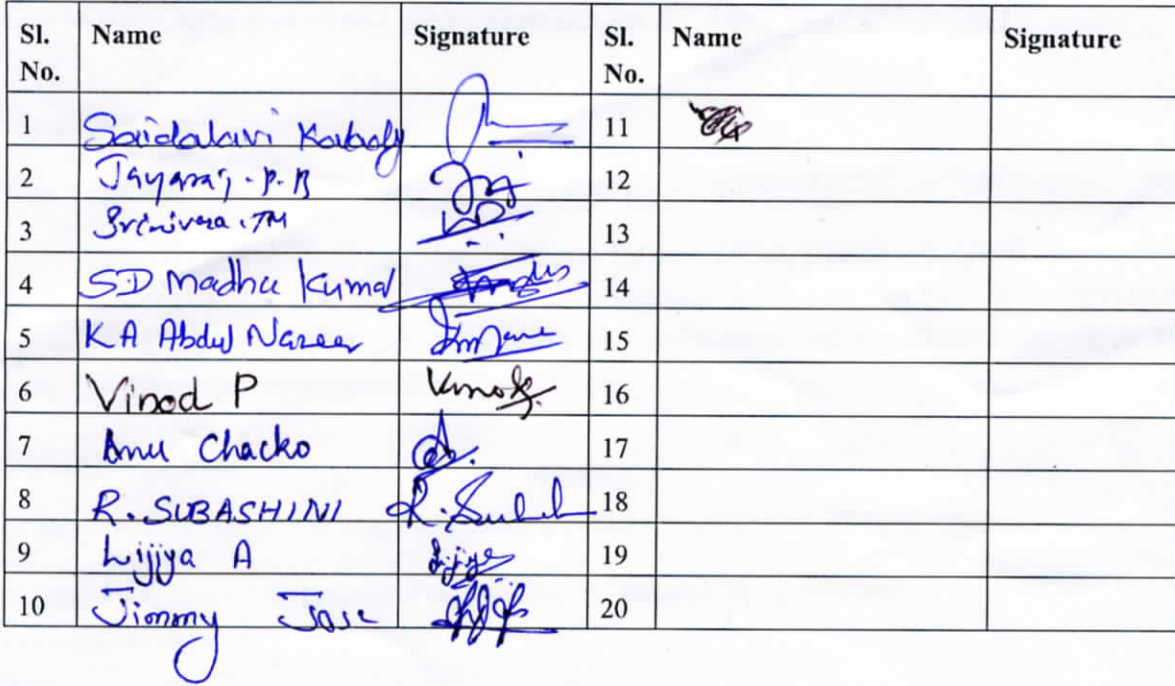 Sl. No. Name Signature Sl. No. Name Signature
1 Saidalavi Kalady 11
2 Jayaraj. P. B 12
3 Srinivasa. TM 13
4 SD Madhu Kumar 14
5 K A Abdul Nazeer 15
6 Vinod P Vinod 16
7 Anu Chacko 17
8 R. SUBASHINI R. Subash 18
9 Lijiya A Lijiya 19
10 Jimmy Jose 20